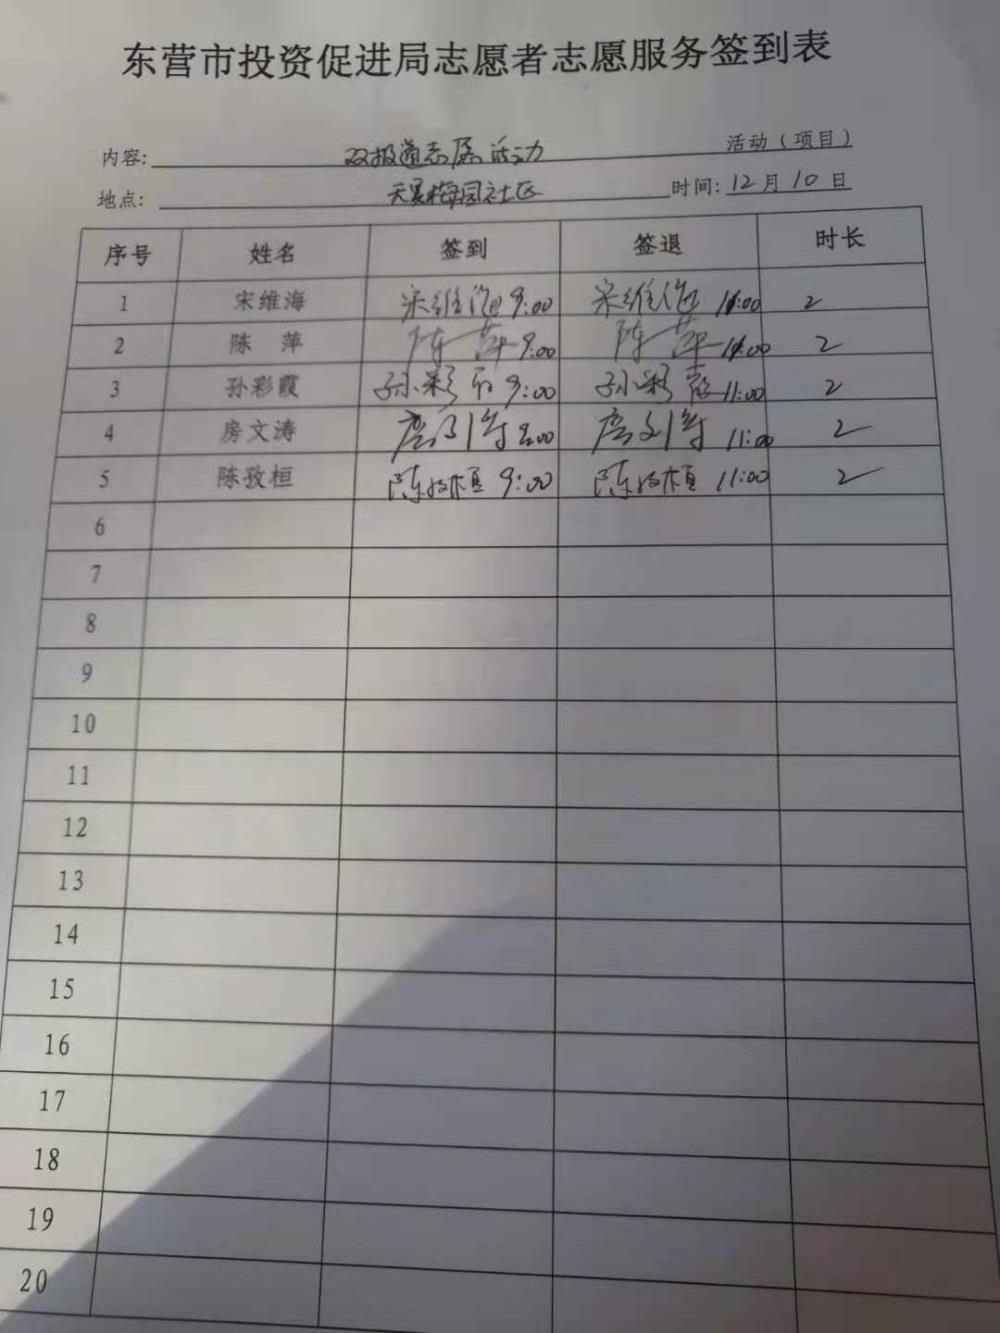 东营市投资促进局志愿者志愿服务签到表
内容: 双报道志愿活动 活动（项目）
地点: 天景梅园社区 时间: 12月10日
序号 姓名 签到 签退 时长
1 宋维海 宋维海 9:00 宋维海 11:00 2
2 陈 萍 陈萍 9:00 陈萍 11:00 2
3 孙彩霞 孙彩霞 9:00 孙彩霞 11:00 2
4 房文涛 房文涛 9:00 房文涛 11:00 2
5 陈孜桓 陈孜桓 9:00 陈孜桓 11:00 2
6
7
8
9
10
11
12
13
14
15
16
17
18
19
20